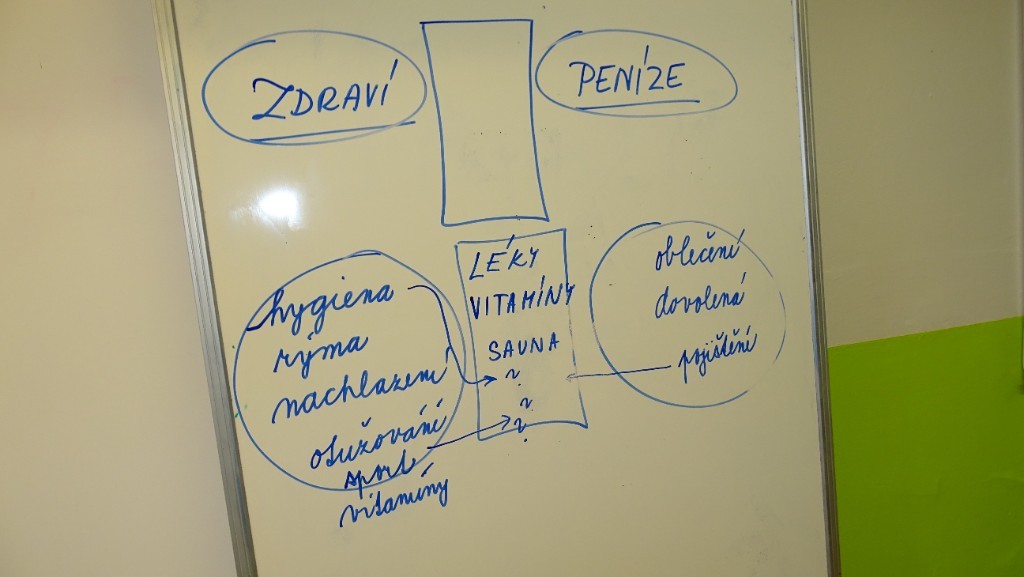 ZDRAVÍ
PENÍZE
hygiena
rýma
nachlazení
otužování
sport
vitamíny
LÉKY
VITAMÍNY
SAUNA
?
?
?
oblečení
dovolená
pojištění